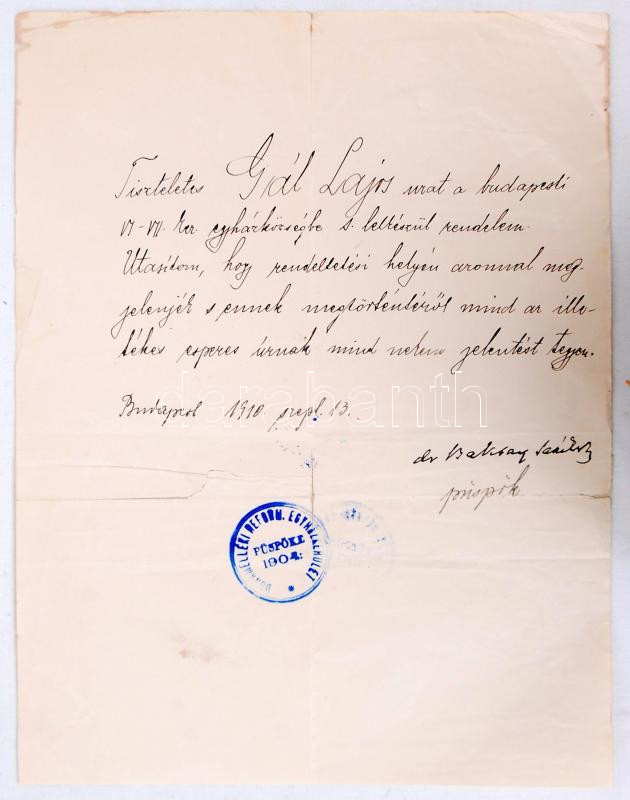 Tiszteletes Gál Lajos urat a budapesti
VI-VII. ker. egyházközségbe s. lelkészül rendelem.
Utasítom, hogy rendeltetési helyén azonnal meg-
jelenjék s ennek megtörténtéről mind az ille-
tékes esperes úrnak mind nekem jelentést tegyen.
Budapest 1910. szept. 13.
dr Baksay Sándor
püspök
DUNAMELLÉKI REFORM. EGYHÁZKERÜLET
PÜSPÖKE
1904.
darabanth